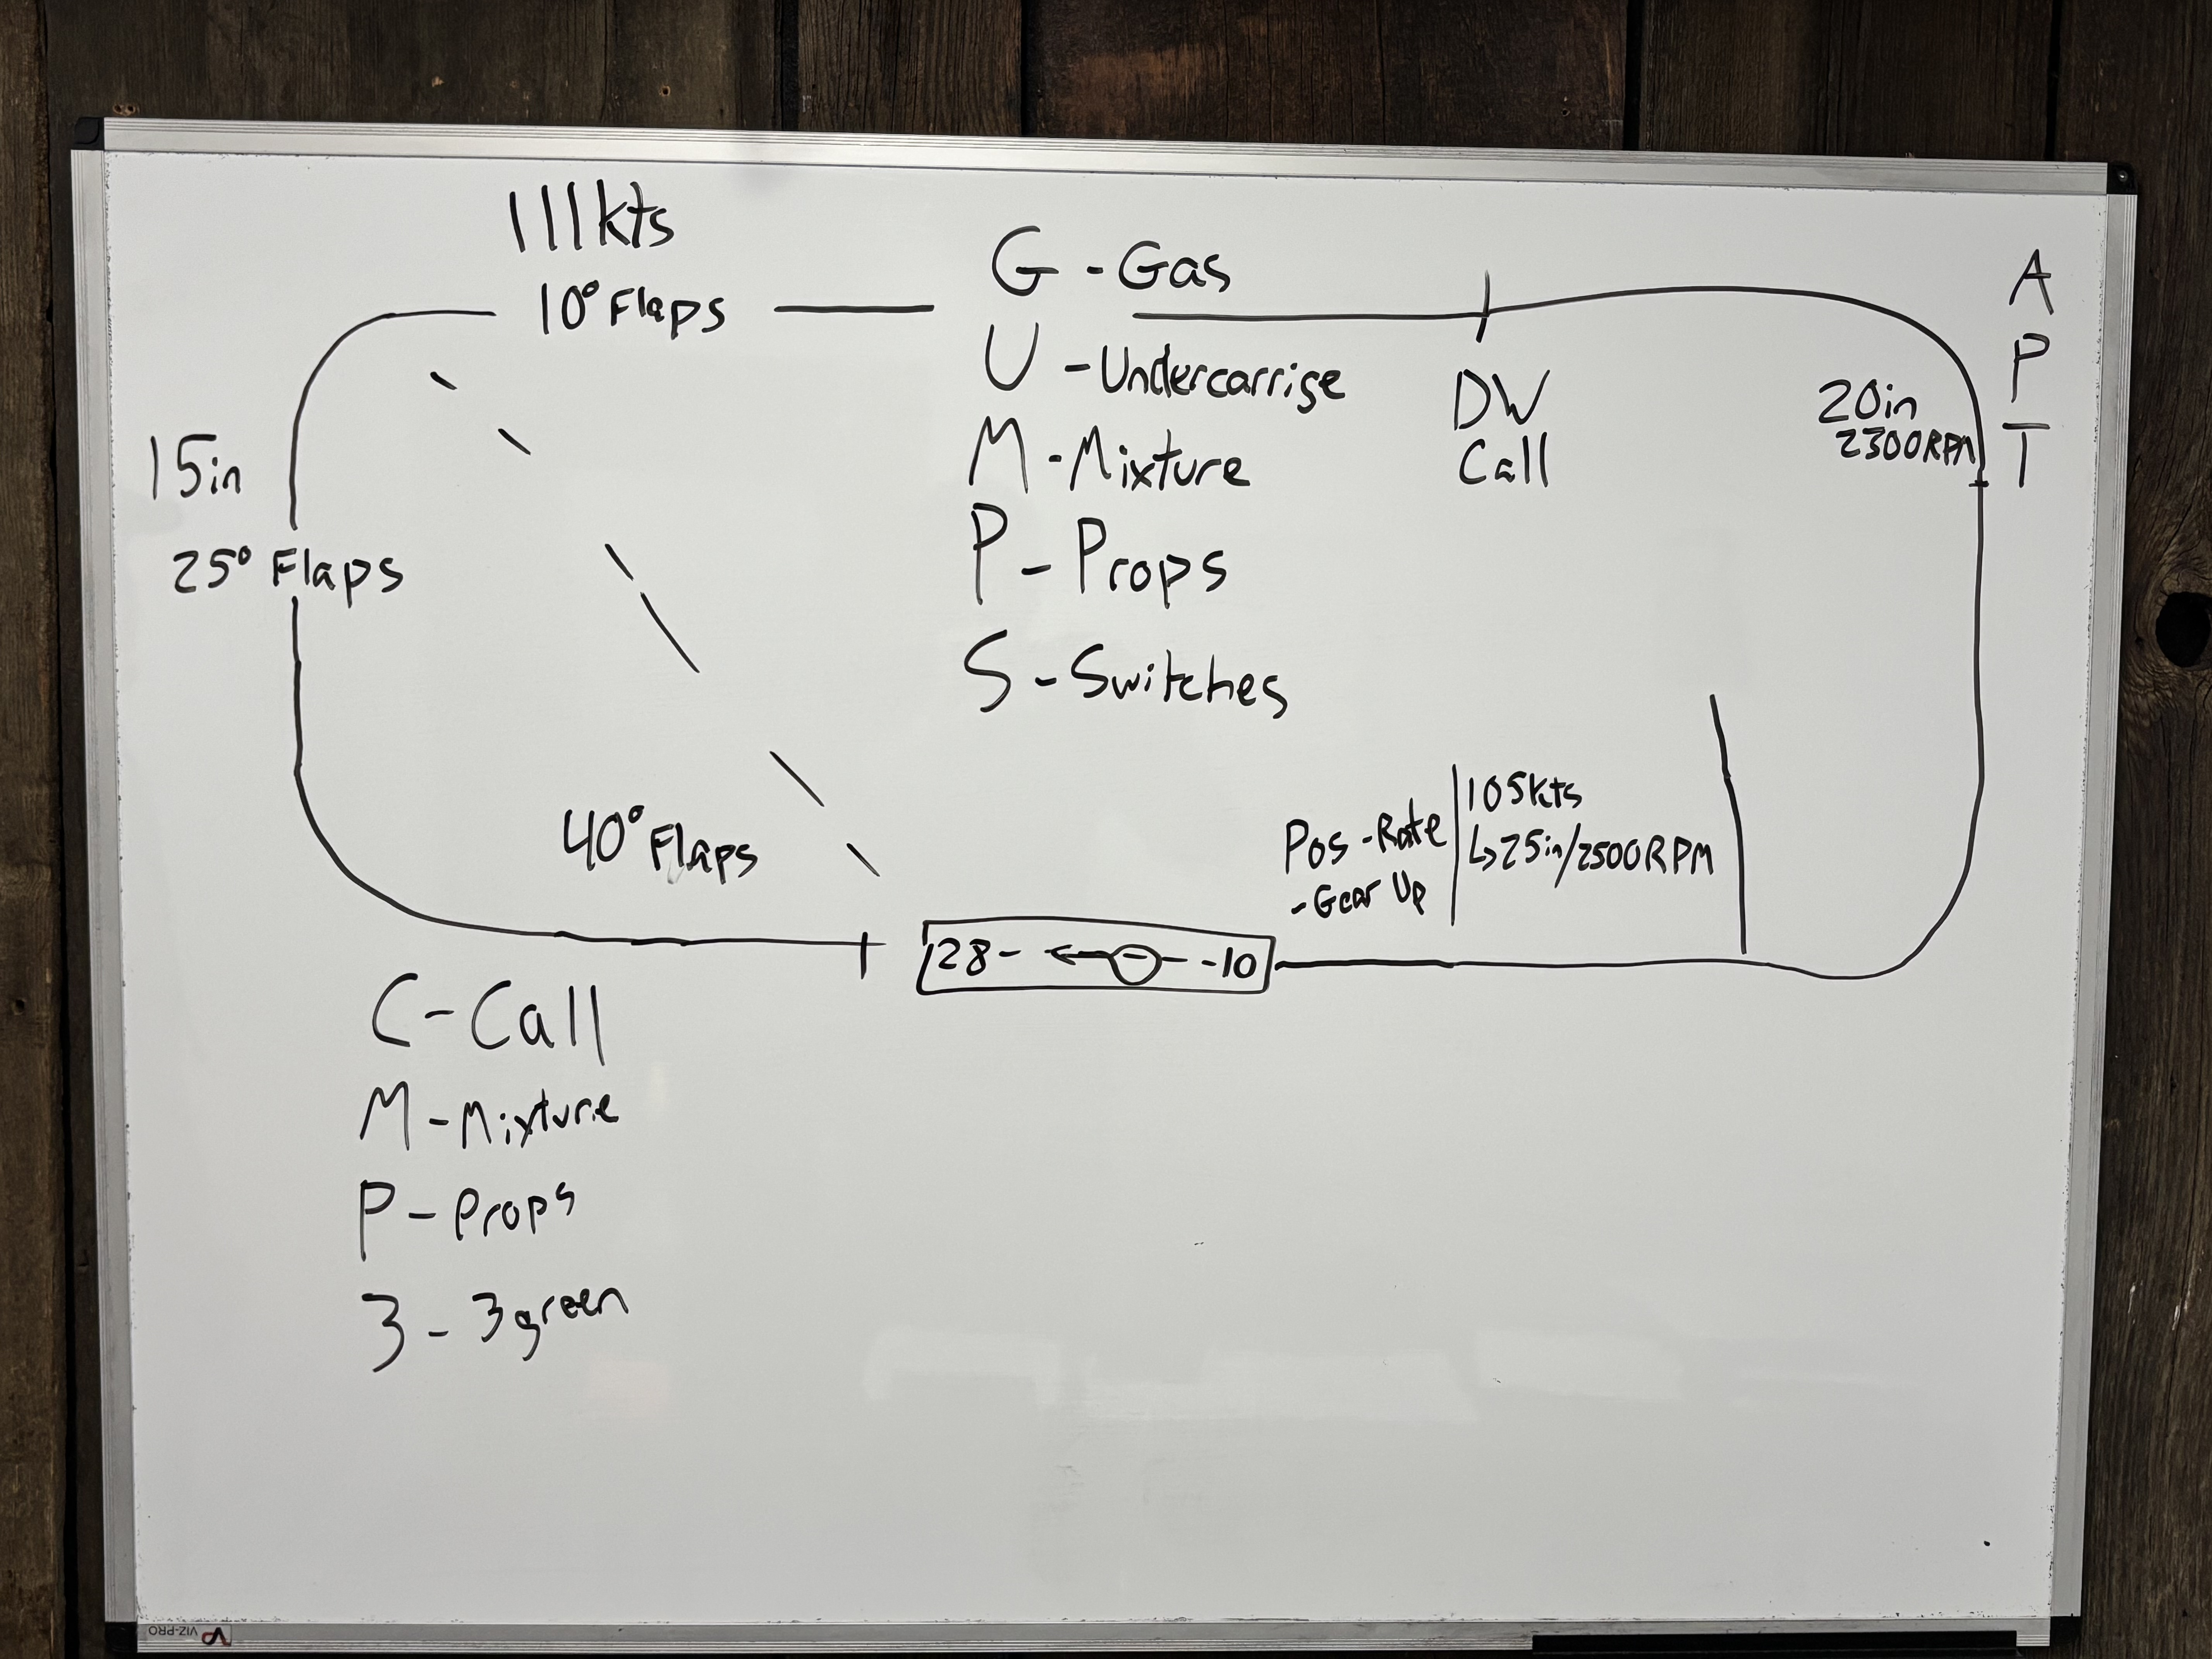 111kts
10° Flaps
G - Gas
U - Undercarrige
M - Mixture
P - Props
S - Switches
DW
Call
A
P
T
20in
2300RPM
15in
25° Flaps
40° Flaps
Pos-Rate
- Gear Up
105kts
↳25in/2500RPM
28- ←⊖- -10
C - Call
M - Mixture
P - Props
3 - 3green
VIZ-PRO